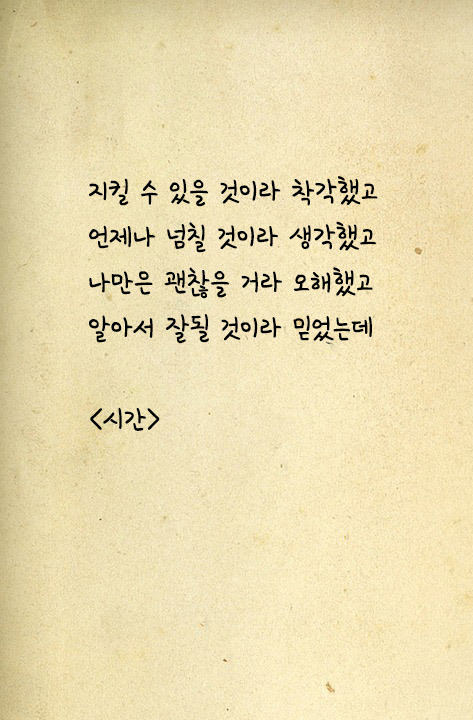 지킬 수 있을 것이라 착각했고
언제나 넘칠 것이라 생각했고
나만은 괜찮을 거라 오해했고
알아서 잘될 것이라 믿었는데
<시간>